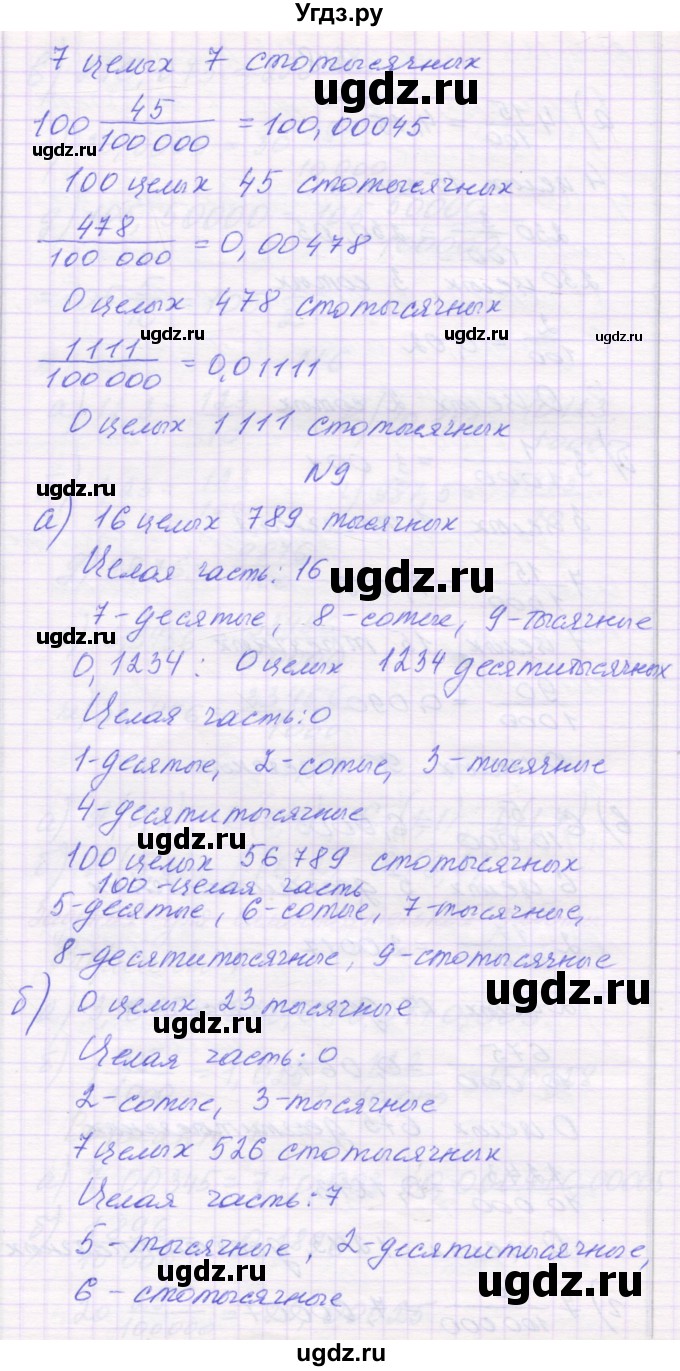 Угдз.ру
7 целых 7 стотысячных
ugdz.ru
100 45/100 000 = 100,00045
ugdz.ru
100 целых 45 стотысячных
ugdz.ru
478/100 000 = 0,00478
0 целых 478 стотысячных
ugdz.ru ugdz.ru ugdz.ru
1111/100000 = 0,01111
0 целых 1111 стотысячных
N9
ugdz.ru
а) 16 целых 789 тысячных
Целая часть: 16
ugdz.ru
7-десятые, 8-сотые, 9-тысячные
ugdz.ru
0,1234: 0 целых 1234 десятитысячных
Целая часть: 0
1-десятые, 2-сотые, 3-тысячные
4-десятитысячные
ugdz.ru
100 целых 56 789 стотысячных
100-целая часть
5-десятые, 6-сотые, 7-тысячные,
ugdz.ru
8-десятитысячные, 9-стотысячные
ugdz.ru
б) 0 целых 23 тысячные
ugdz.ru
Целая часть: 0
2-сотые, 3-тысячные
7 целых 526 стотысячных
Целая часть: 7
5-тысячные, 2-десятитысячные,
ugdz.ru ugdz.ru
6-стотысячные
ugdz.ru